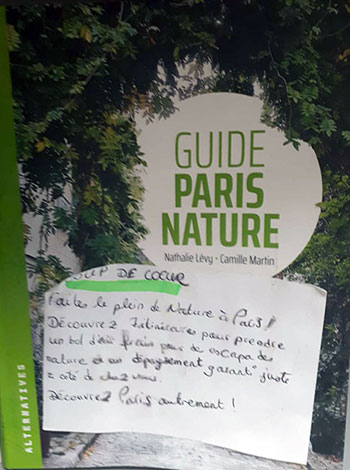 GUIDE
PARIS
NATURE
Nathalie Lévy • Camille Martin
COUP DE COEUR
Faites le plein de Nature à Paris!
DÉCOUVREZ Itinéraires pour prendre
un bol d'air frais pour des escapades
nature et un dépaysement garanti juste
à côté de chez vous.
DÉCOUVREZ Paris autrement !
ALTERNATIVES